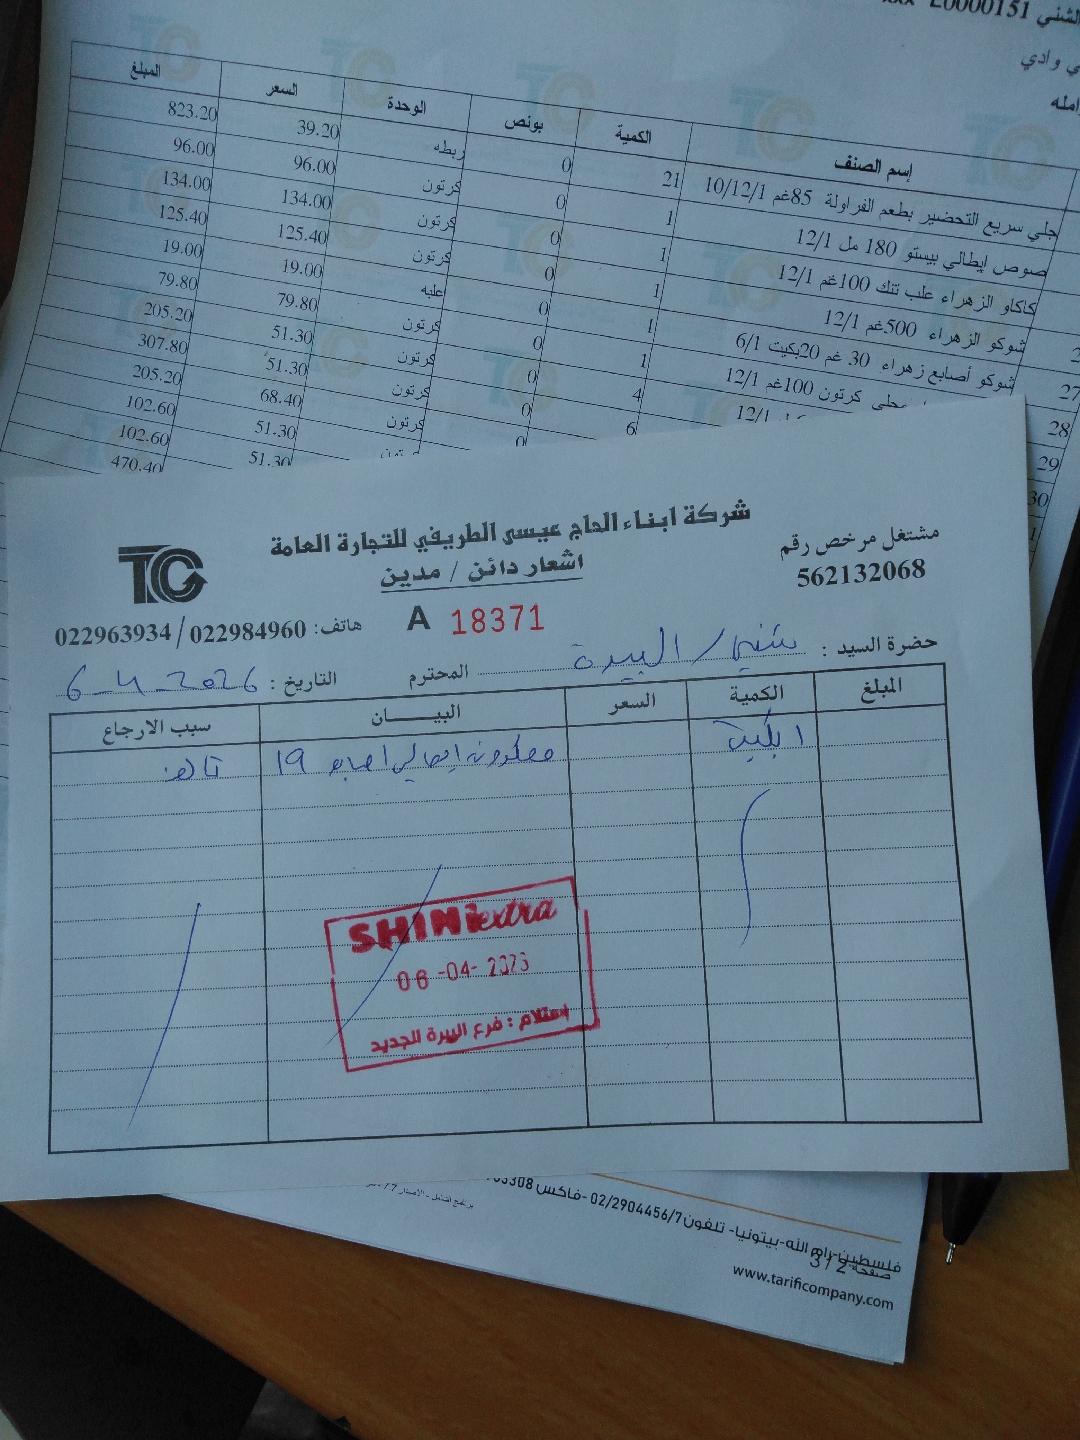 الشني xxx E0000151
ي وادي
امله
إسم الصنف الكمية بونص الوحدة السعر المبلغ
جلي سريع التحضير بطعم الفراولة 85غم 10/12/1 21 0 ربطه 39.20 823.20
صوص ايطالي بيستو 180 مل 12/1 1 0 كرتون 96.00 96.00
كاكاو الزهراء علب تنك 100غم 12/1 1 0 كرتون 134.00 134.00
شوكو الزهراء 500غم 12/1 1 0 كرتون 125.40 125.40
27 شوكو أصابع زهراء 30 غم 20بكيت 6/1 1 0 علبه 19.00 19.00
28 محلى كرتون 100غم 12/1 1 0 كرتون 79.80 79.80
29 12/1 4 0 كرتون 51.30 205.20
30 6 0 كرتون 51.30 307.80
0 كرتون 68.40 205.20
51.30 102.60
51.30 102.60
470.40
TC
شركة ابناء الحاج عيسى الطريفي للتجارة العامة
اشعار دائن / مدين
مشتغل مرخص رقم
562132068
A 18371
هاتف: 022984960 / 022963934
حضرة السيد : شني / البيرة المحترم
التاريخ : 6-4-2026
المبلغ الكمية السعر البيـــــان سبب الارجاع
1 بكيت معكرونه ايطالي اصابع 19 تالف
SHINI extra
06-04-2026
استلام : فرع البيرة الجديد
فلسطين-رام الله-بيتونيا- تلفون 02/2904456/7 -فاكس
صفحة 2 / 3
www.tarificompany.com